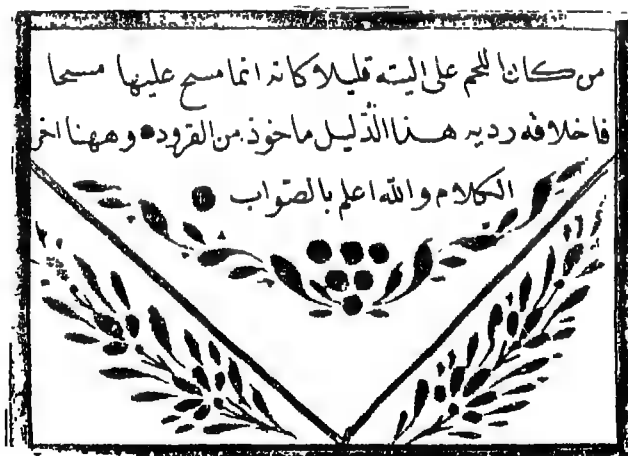 من كان اللحم على اليته قليلا وكانه انما مسح عليها مسحا
فاخلاقه رديه هـذا الدليل ماخوذ من القرود وههنا اخر
الكلام والله اعلم بالصواب